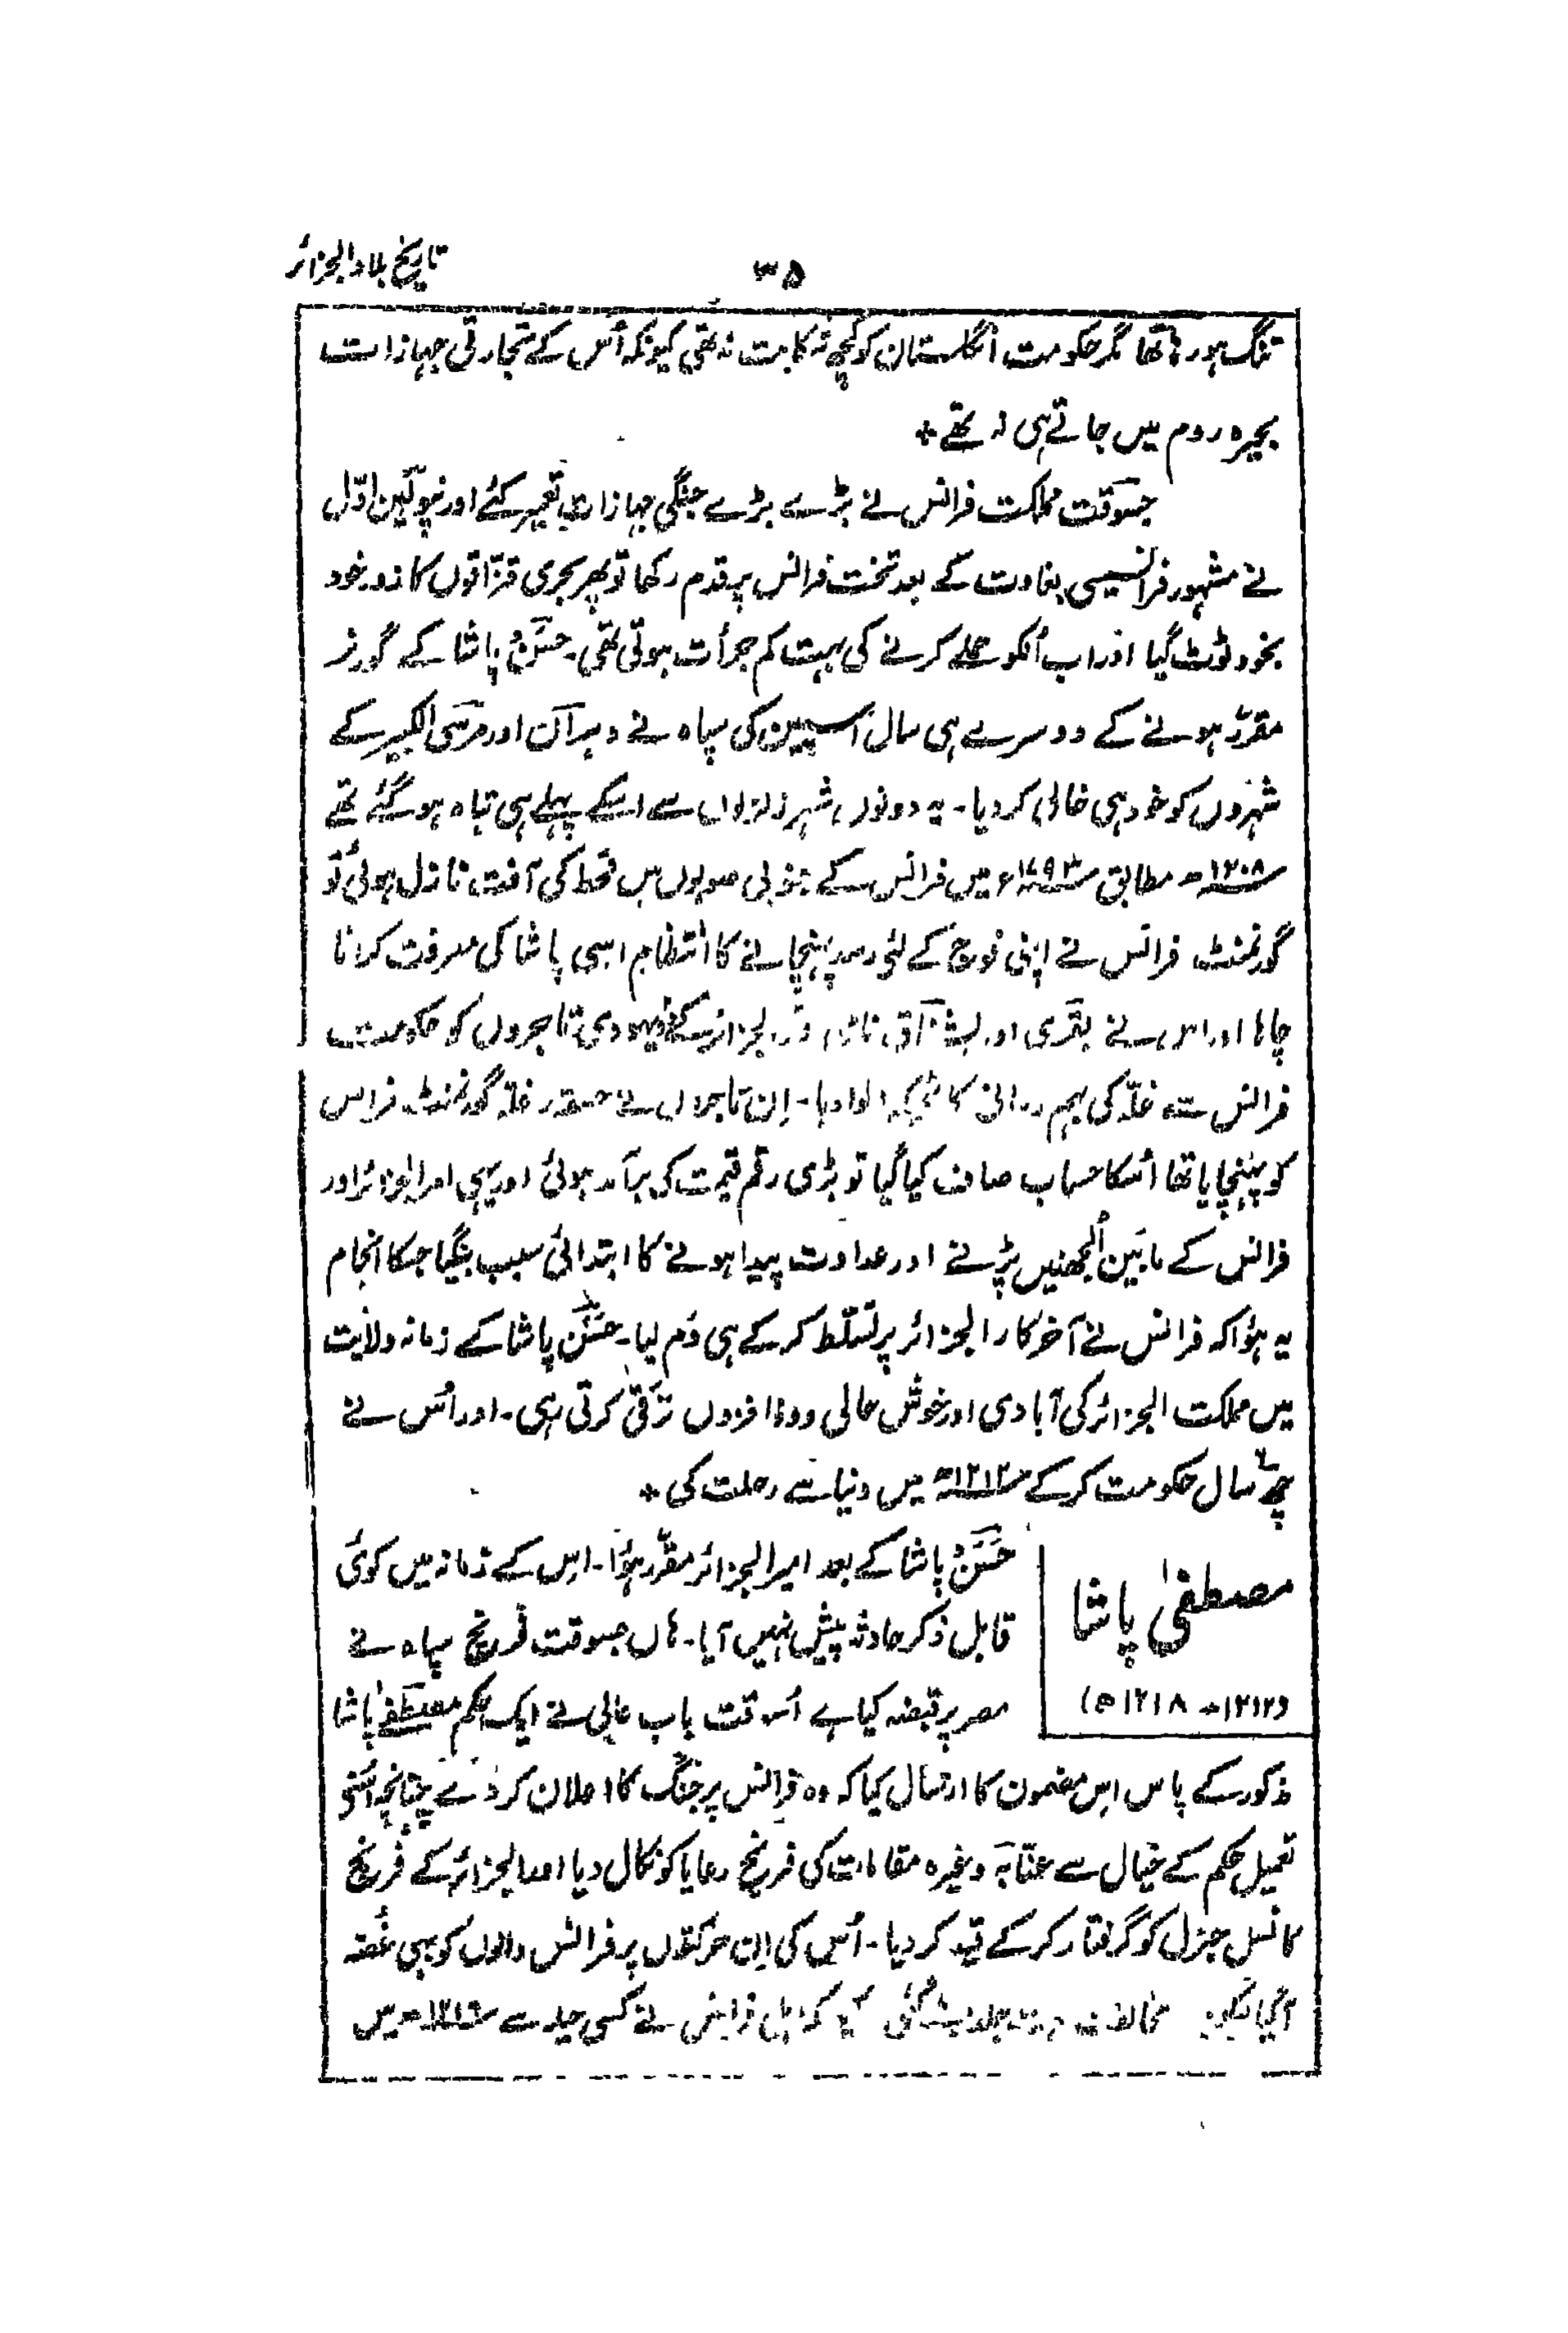 تاریخ بلاد الجزائر
۳۵
تنگ ہو رہا تھا مگر حکومت انگلستان کو کچھ شکایت نہ تھی کیونکہ اُس کے تجارتی جہازات
بحیرہ روم میں جاتے ہی نہ تھے +
جسوقت مملکت فرانس نے بڑے بڑے جنگی جہازات تعمیر کئے اور نپولین اوّل
نے مشہور فرانسیسی بغاوت کے بعد تخت فرانس پر قدم رکھا تو پھر بحری قزّاقوں کا زور خود
بخود ٹوٹ گیا اور اب اُنکو حملے کرنے کی بہت کم جرأت ہوتی تھی۔ حسَن پاشا کے گورنر
مقرّر ہونے کے دوسرے ہی سال اسپین کی سپاہ نے وہران اور مرسَی الکبیر کے
شہروں کو خود ہی خالی کردیا۔ یہ دونوں شہر زلزلوں سے اسکے پہلے ہی تباہ ہو گئے تھے
۱۲۰۸ھ مطابق ۱۷۹۳ء میں فرانس کے جنوبی صوبوں میں قحط کی آفت نازل ہوئی تو
گورنمنٹ فرانس نے اپنی فوج کے لئے رسد پہنچانے کا انتظام اسی پاشا کی معرفت کرانا
چاہا اور اس نے بقری اور بشناق نامی دو الجزائر کے یہودی تاجروں کو حکومت
فرانس سے غلّہ کی بہم رسانی کا ٹھیکہ دلوادیا۔ اِن تاجروں نے جسقدر غلّہ گورنمنٹ فرانس
کو پہنچایا تھا اُسکا حساب صاف کیا گیا تو بڑی رقم قیمت کی برآمد ہوئی اور یہی امر الجزائر اور
فرانس کے مابَین اُلجھنیں پڑنے اور عداوت پیدا ہونے کا ابتدائی سبب بنگیا جسکا انجام
یہ ہؤا کہ فرانس نے آخرکار الجزائر پر تسلّط کر کے ہی دَم لیا۔ حسَن پاشا کے زمانہ ولایت
میں مملکت الجزائر کی آبادی اور خوش حالی روز افزوں ترقّی کرتی رہی۔ اور اُس نے
چھ سال حکومت کر کے ۱۲۱۲ھ میں دنیا سے رحلت کی +
مصطفیٰ پاشا
(۱۲۱۲ھ ۱۲۱۸ھ)
حَسَن پاشا کے بعد امیر الجزائر مقرّر ہؤا۔ اِس کے زمانہ میں کوئی
قابل ذکر حادثہ پیش نہیں آیا۔ ہاں جسوقت فرنچ سپاہ نے
مصر پر قبضہ کیا ہے اُسوقت باب عالی نے ایک حکم مصطفےٰ پاشا
مذکور کے پاس اِس مضمون کا ارسال کیا کہ وہ فرانس پر جنگ کا اعلان کردے چنانچہ اُسنے
تعمیل حکم کے خیال سے عنّابہ وغیرہ مقامات کی فرنچ رعایا کو نکال دیا اور الجزائر کے فرنچ
کانسل جنرل کو گرفتار کر کے قید کر دیا۔ اُس کی اِن حرکتوں پر فرانس والوں کو بھی غُصّہ
آگیا لیکن مخالفت بہت جلد مٹ گئی کیونکہ اہل فرانس نے کسی حیلہ سے ۱۲۱۶ھ میں